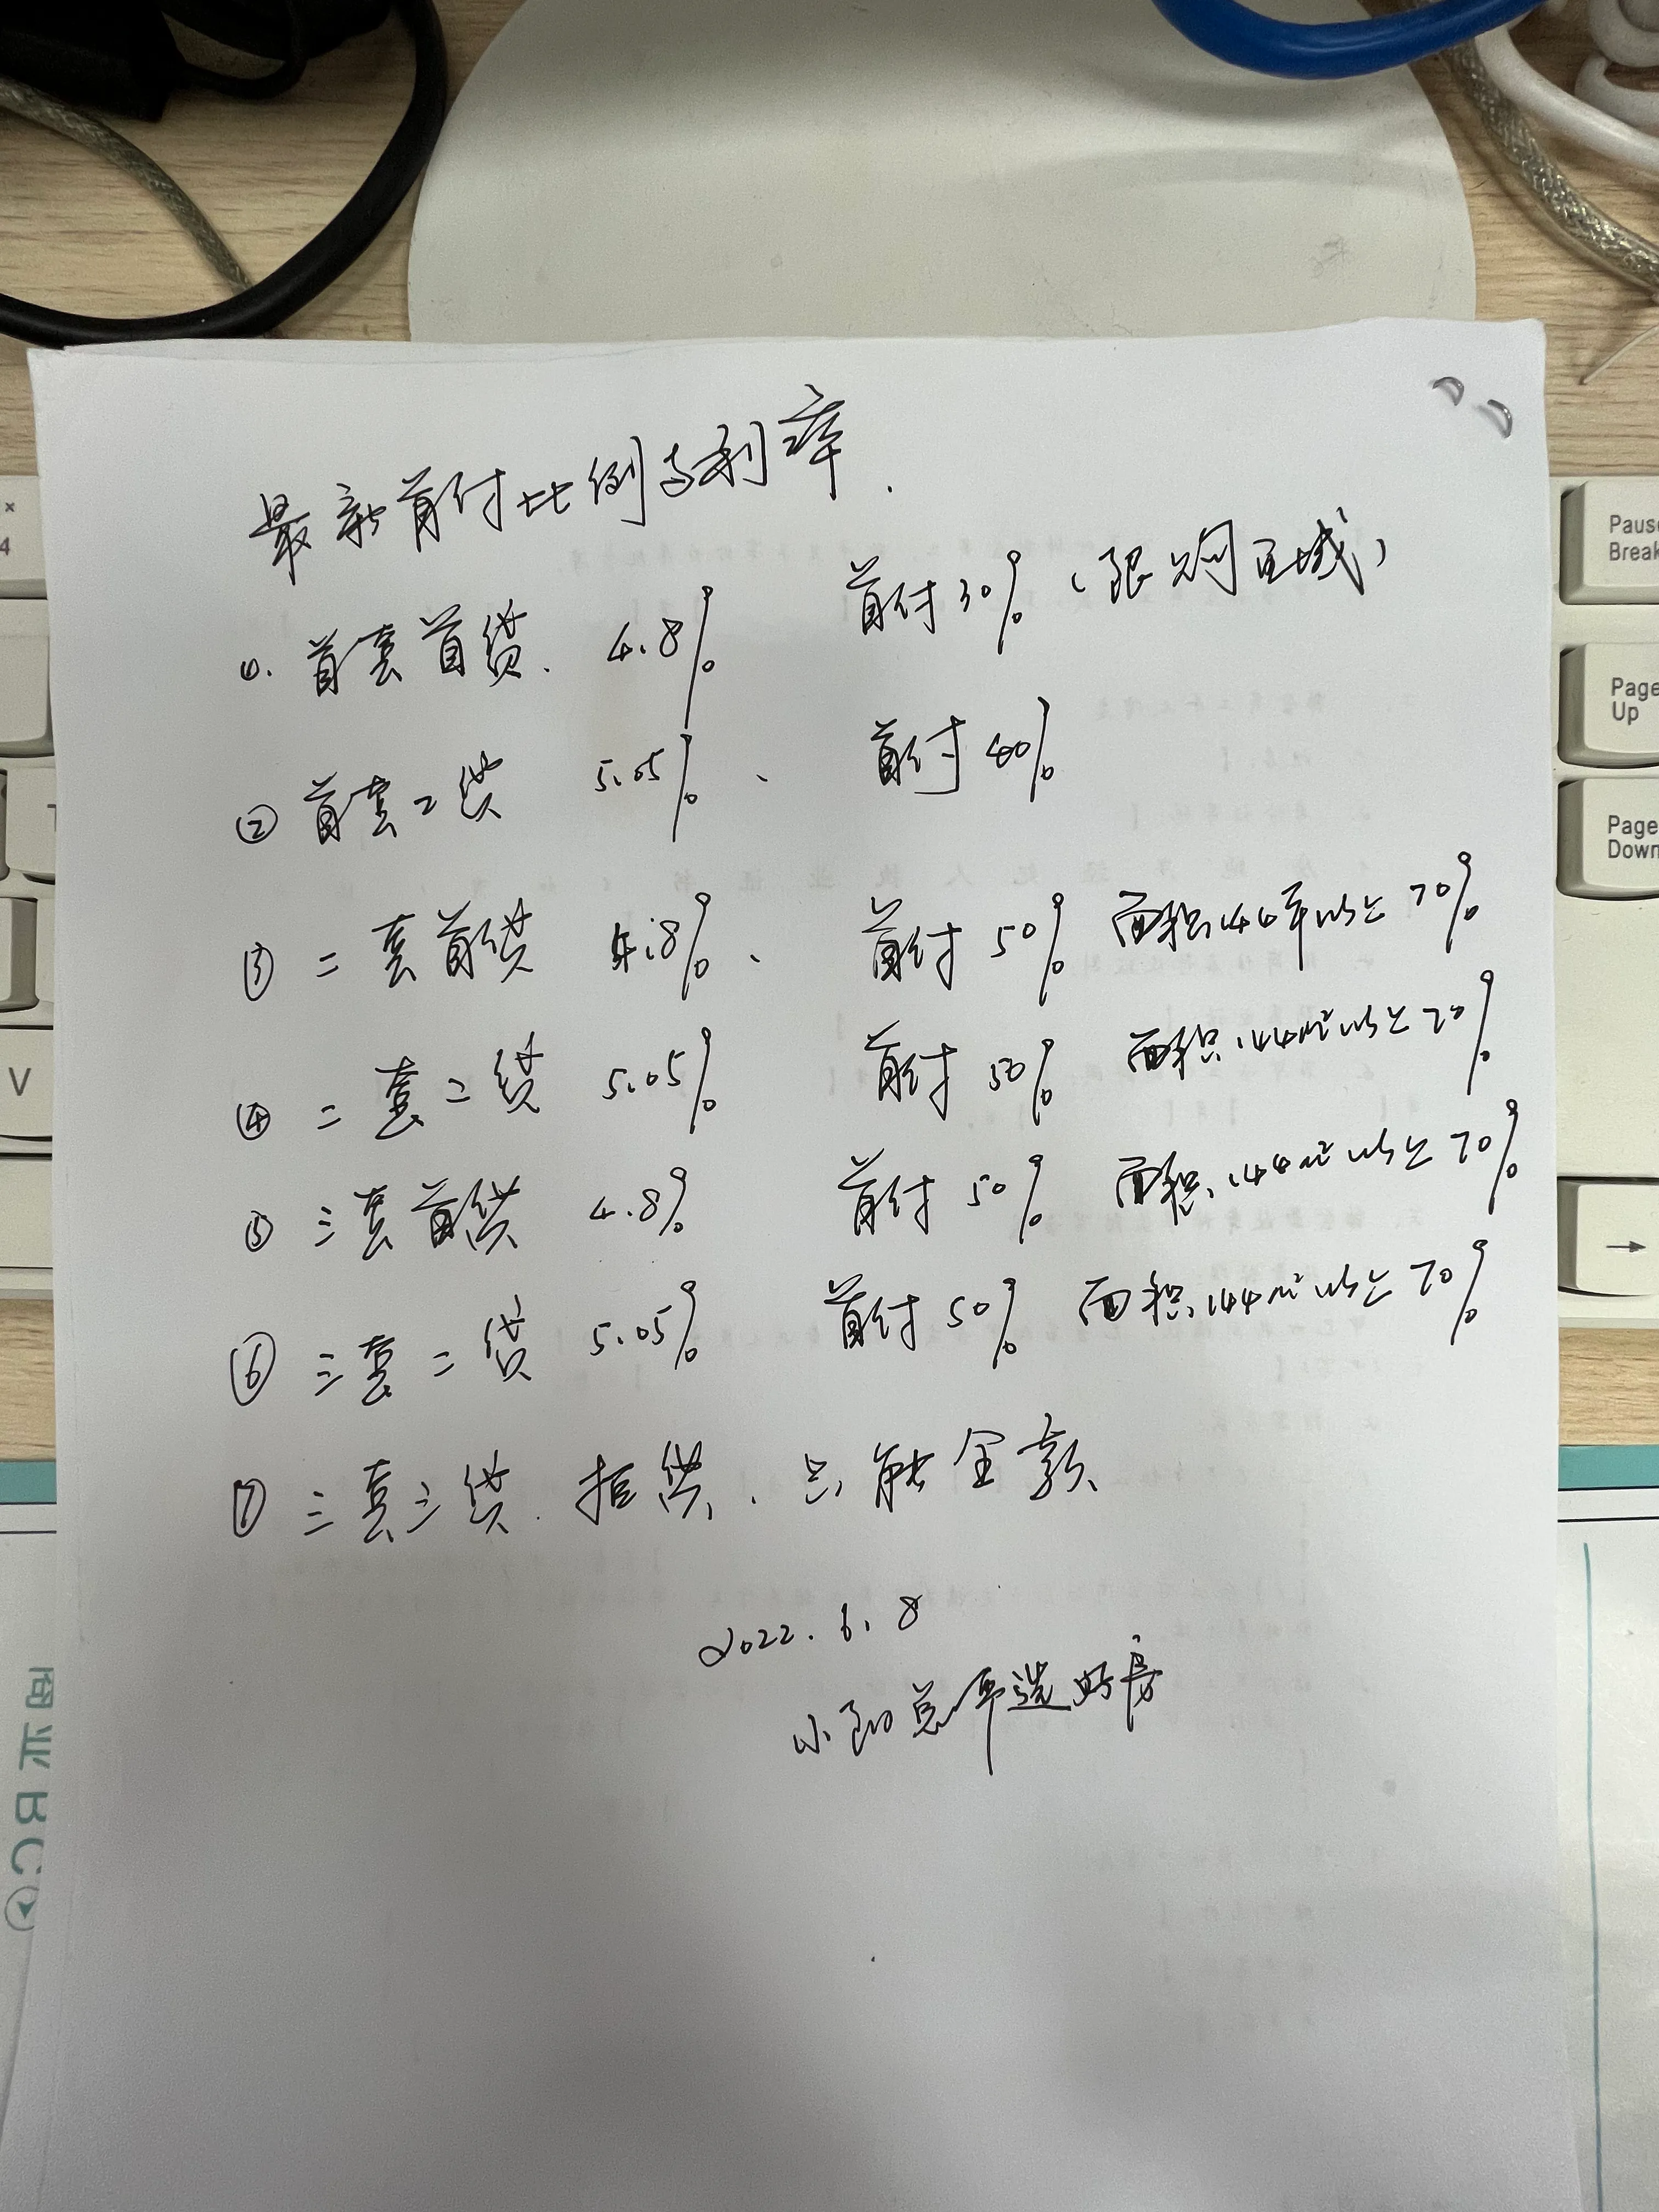 最新首付比例与利率.
①. 首套首贷. 4.8% 首付30%（限购区域）
② 首套二贷 5.05%、 首付40%
③ 二套首贷 4.8%、 首付50% 面积144平以上70%
④ 二套二贷 5.05% 首付50% 面积144m²以上70%
⑤ 三套首贷 4.8% 首付50% 面积144m²以上70%
⑥ 三套二贷 5.05% 首付50% 面积144m²以上70%
⑦ 三套三贷. 拒贷. 只能全款
2022.6.8
小 总平选好房
Pause
Break
Page
Up
Page
Down
→
V
4